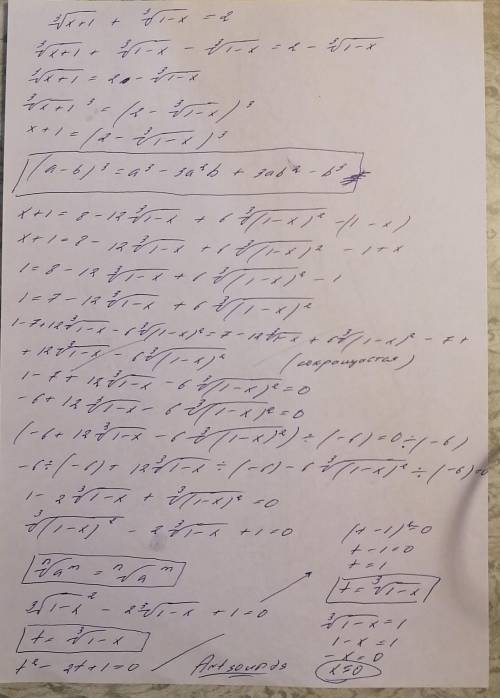 ∛(x+1) + ∛(1-x) = 2
∛(x+1) + ∛(1-x) - ∛(1-x) = 2 - ∛(1-x)
∛(x+1) = 2 - ∛(1-x)
∛(x+1)³ = (2 - ∛(1-x))³
x+1 = (2 - ∛(1-x))³
(a-b)³ = a³ - 3a²b + 3ab² - b³
x+1 = 8 - 12∛(1-x) + 6∛((1-x)²) - (1-x)
x+1 = 8 - 12∛(1-x) + 6∛((1-x)²) - 1 + x
1 = 8 - 12∛(1-x) + 6∛((1-x)²) - 1
1 = 7 - 12∛(1-x) + 6∛((1-x)²)
1-7+12∛(1-x) - 6∛((1-x)²) = 7 - 12∛(1-x) + 6∛((1-x)²) - 7 +
+ 12∛(1-x) - 6∛((1-x)²) (сокращается)
1 - 7 + 12∛(1-x) - 6∛((1-x)²) = 0
-6 + 12∛(1-x) - 6∛((1-x)²) = 0
(-6 + 12∛(1-x) - 6∛((1-x)²)) ÷ (-6) = 0 ÷ (-6)
-6 ÷ (-6) + 12∛(1-x) ÷ (-6) - 6∛((1-x)²) ÷ (-6) = 0
1 - 2∛(1-x) + ∛((1-x)²) = 0
∛((1-x)²) - 2∛(1-x) + 1 = 0
ⁿ√(aᵐ) = ⁿ√a ᵐ
∛(1-x)² - 2∛(1-x) + 1 = 0
t = ∛(1-x)
t² - 2t + 1 = 0
(t-1)² = 0
t - 1 = 0
t = 1
t = ∛(1-x)
∛(1-x) = 1
1 - x = 1
-x = 0
x = 0